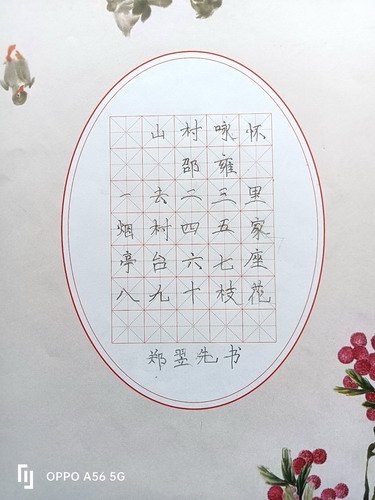 山村咏怀
邵雍
一去二三里
烟村四五家
亭台六七座
八九十枝花
郑翌先书
OPPO A56 5G